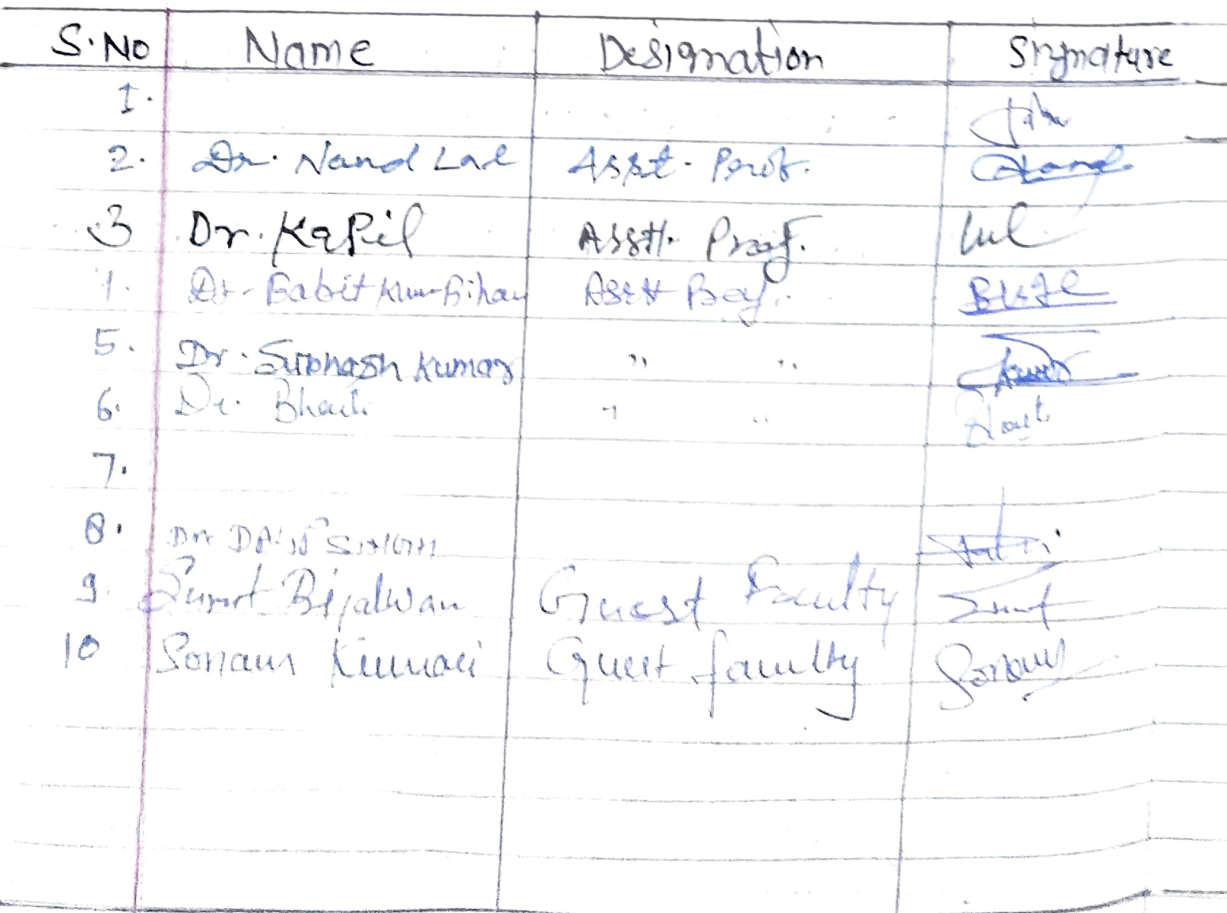 S.No Name Designation Signature
1.
2. Dr. Nand Lal Asst. Prof.
3 Dr. Kapil Asstt. Prof.
Dr. Babit Kumar Bihan Asstt Prof.
5. Dr. Subhash Kumar " "
6. Dr. Bharti " "
7.
8. Dr.
9. Sumit Bijalwan Guest Faculty
10 Sonam Kumari Guest faculty Sonam